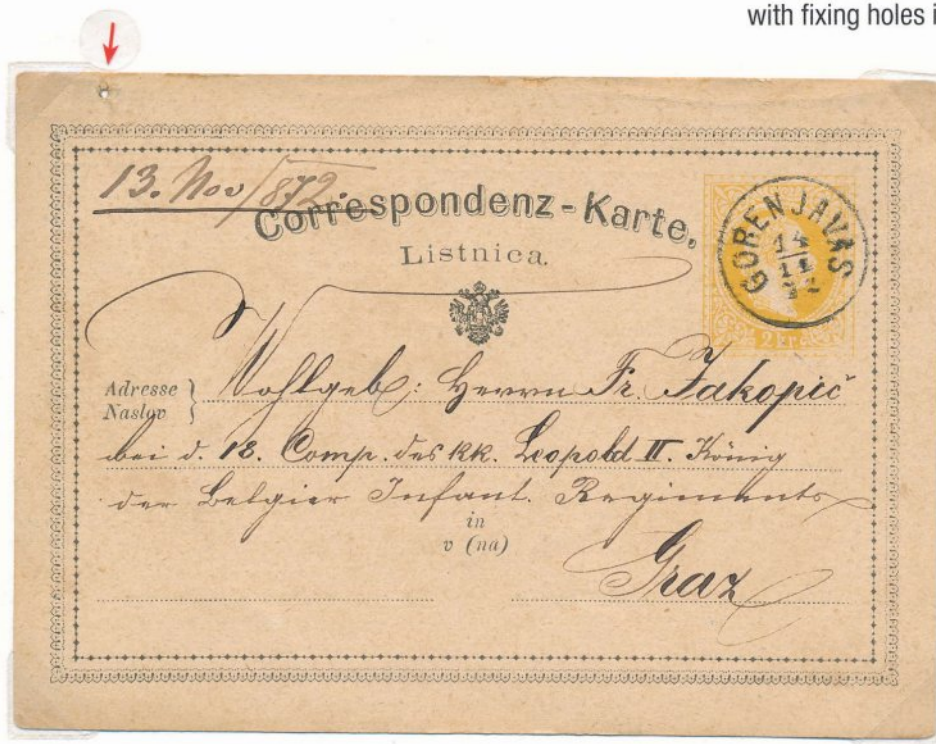 with fixing holes i
13. Nov 1872.
Correspondenz-Karte.
Listnica.
GORENJAVAS
14
11
72
2 kr.
Adresse
Naslov
Wohlgeb: Herrn Fr. Jakopič
bei d. 18. Comp. des kk. Leopold II. König
der Belgier Infant. Regiments
in
v (na)
Graz